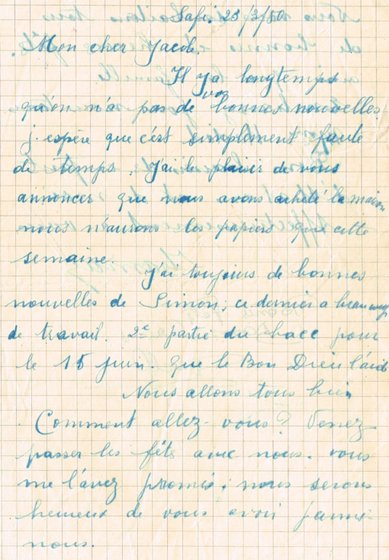 Safi, 23/3/50
Mon cher Jacob,
Il y a longtemps
qu'on n'a pas de vos bonnes nouvelles
j'espère que c'est simplement faute
de temps. J'ai le plaisir de vous
annoncer que nous avons acheté la maison
nous n'aurons les papiers que cette
semaine.
J'ai toujours de bonnes
nouvelles de Simon, ce dernier a beaucoup
de travail. 2e partie du bacc pour
le 15 juin. Que le Bon Dieu l'aide
Nous allons tous bien
Comment allez-vous? Venez
passer les fête avec nous. vous
me l'avez promis, nous serons
heureux de vous avoir parmi
nous.